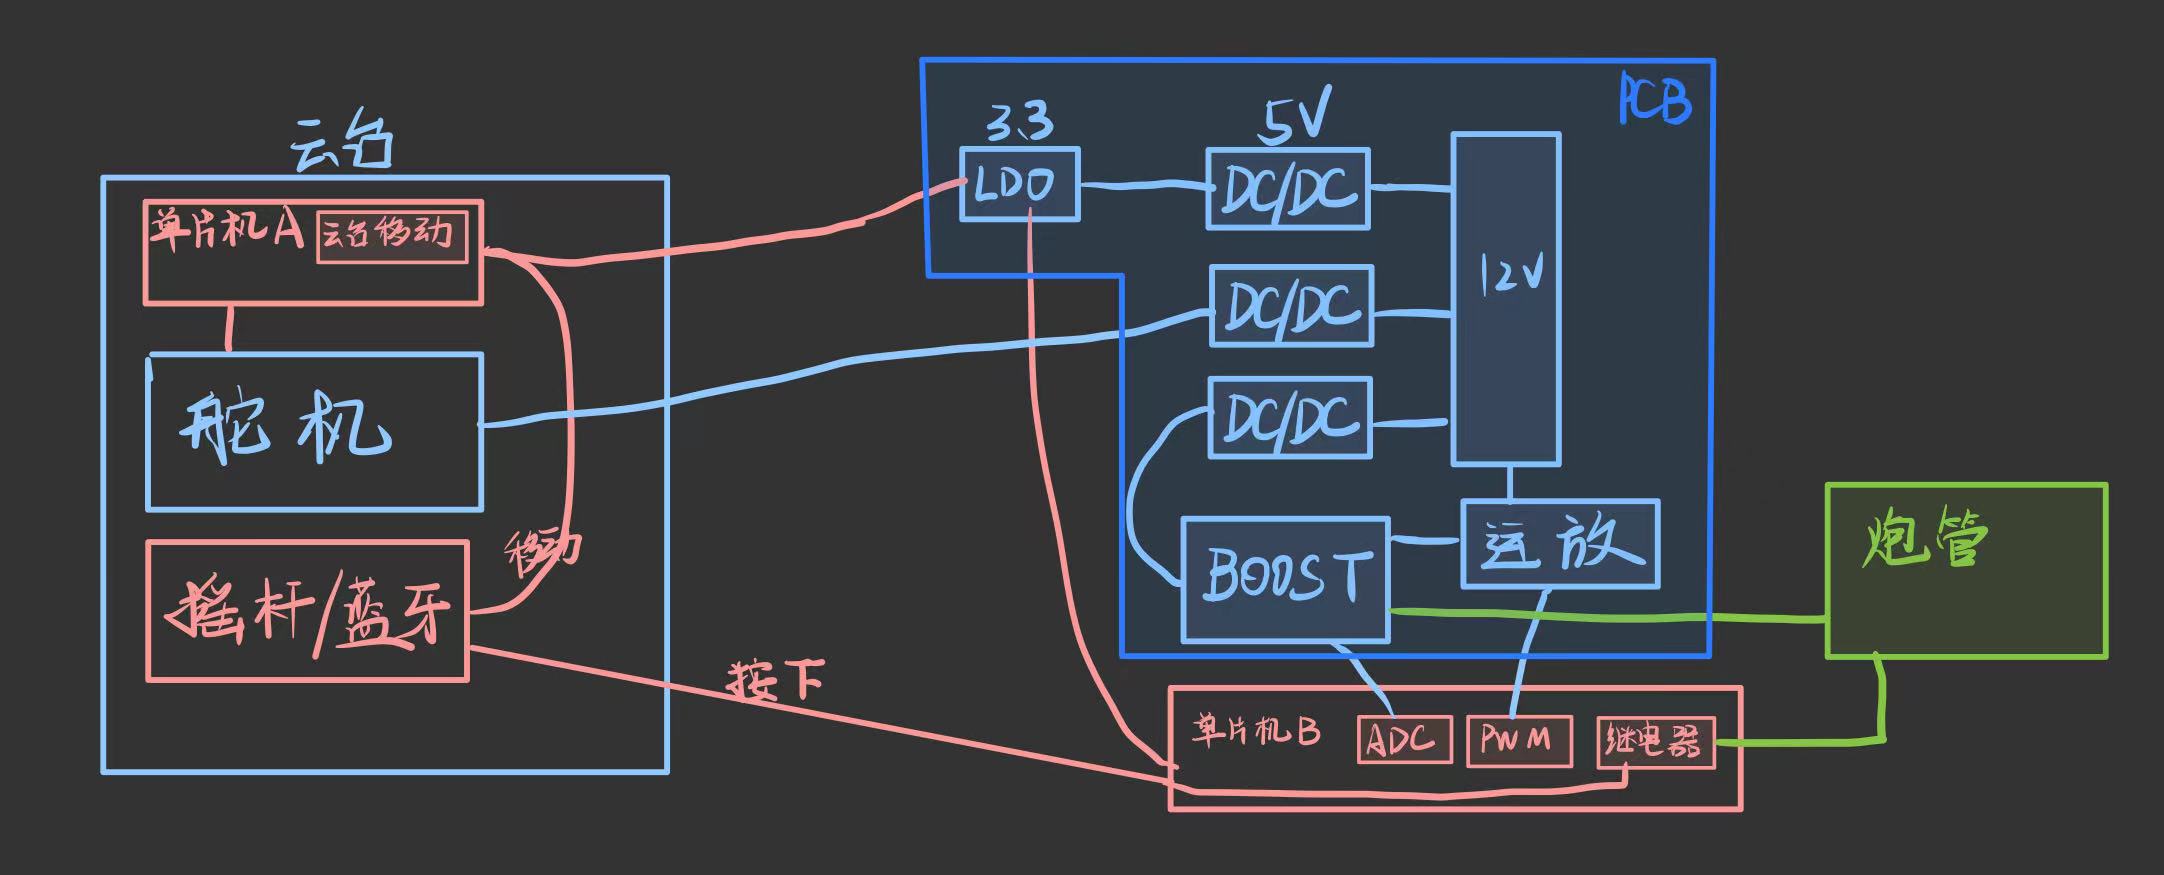 云台
单片机A
云台移动
舵机
摇杆/蓝牙
移动
按下
PCB
3.3
LDO
5V
DC/DC
DC/DC
DC/DC
12V
BOOST
运放
炮管
单片机B
ADC
PWM
继电器